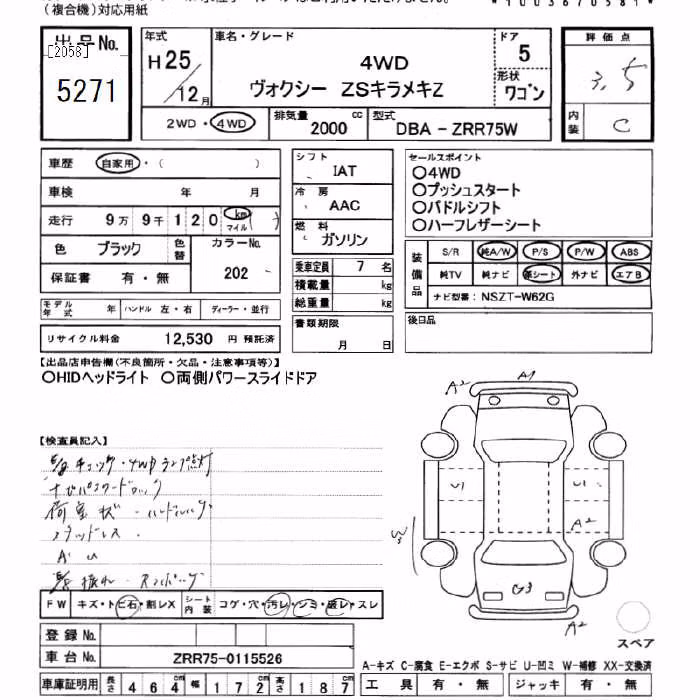 (複合機)対応用紙
*1003670581*
出品No.
[2058]
5271
年式
H25/12月
車名・グレード
4WD
ヴォクシー ZSキラメキZ
ドア
5
形状
ワゴン
評価点
3.5
内装
C
2WD・4WD
排気量
2000 cc
型式
DBA - ZRR75W
車歴 自家用・( )
車検 年 月
走行 9万 9千 1 2 0 km マイル
色 ブラック 色替
カラーNo.
202
保証書 有・無
シフト
IAT
冷房
AAC
燃料
ガソリン
乗車定員 7 名
積載量 kg
総重量 kg
セールスポイント
○4WD
○プッシュスタート
○パドルシフト
○ハーフレザーシート
装備品
S/R 純A/W P/S P/W ABS
純TV 純ナビ 革シート 外ナビ エアB
ナビ型番: NSZT-W62G
モデル年式 年 ハンドル 左・右 ディーラー・並行
リサイクル料金 12,530 円 預託済
書類期限
月 日
後日品
【出品店申告欄(不良箇所・欠品・注意事項等)】
○HIDヘッドライト ○両側パワースライドドア
【検査員記入】
チェック・4WDランプ点灯
ナビパスワードロック
A U
A2 A1
U1 U1
A2
W3
G3
A2
FW キズ・トビ石・割レX シート内装 コゲ・穴・汚レ・シミ・破レ・スレ
登録No.
車台No. ZRR75-0115526
スペア
A-キズ C-腐食 E-エクボ S-サビ U-凹ミ W-補修 XX-交換済
車庫証明用 長さ 464 cm 幅 172 cm 高さ 187 cm
工具 有・無 ジャッキ 有・無